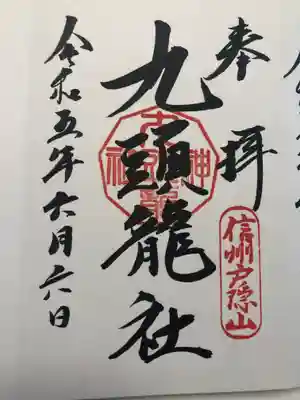 奉拝
信州戸隠山
九頭龍社
令和五年六月六日